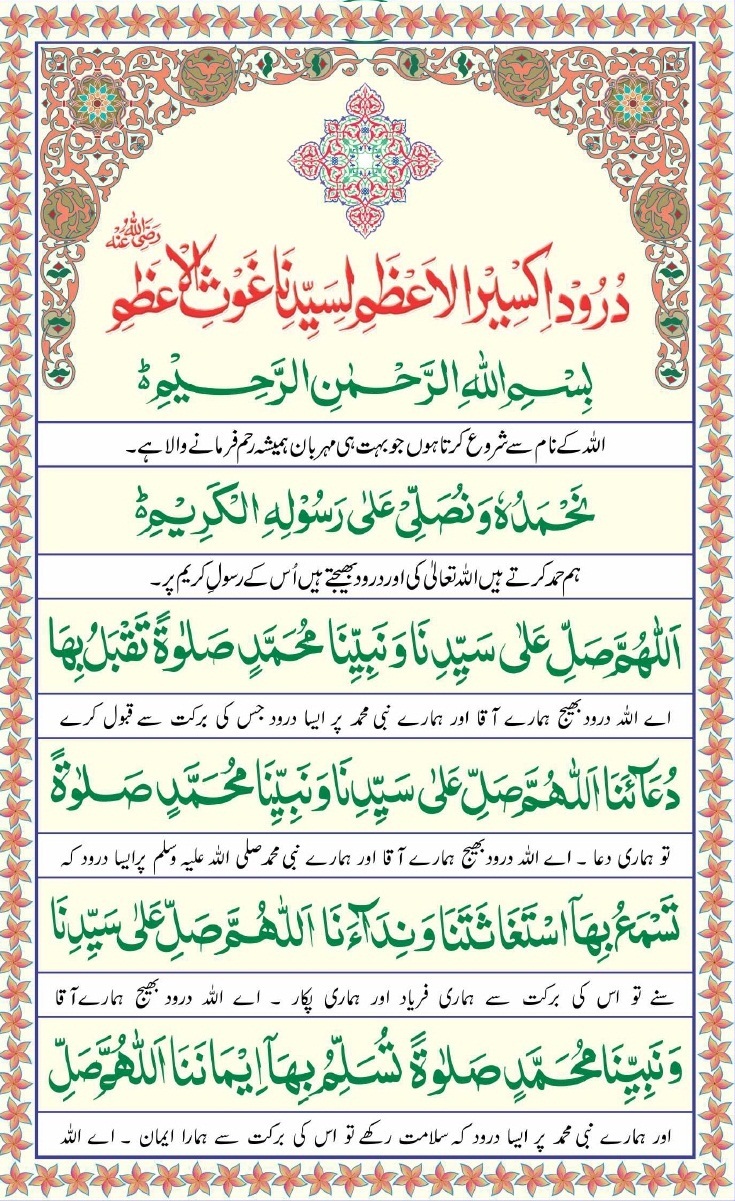 دُرُوْدِ اِکْسِیْرِ الْاَعْظَمِ لِسَیِّدِنَا غَوْثِ الْاَعْظَمِ رَضِیَ اللہُ عَنْہُ
بِسْمِ اللہِ الرَّحْمٰنِ الرَّحِیْمِ ط
اللہ کے نام سے شروع کرتا ہوں جو بہت ہی مہربان ہمیشہ رحم فرمانے والا ہے۔
نَحْمَدُہٗ وَنُصَلِّیْ عَلٰی رَسُوْلِہِ الْکَرِیْمِ ط
ہم حمد کرتے ہیں اللہ تعالیٰ کی اور درود بھیجتے ہیں اُس کے رسولِ کریم پر۔
اَللّٰھُمَّ صَلِّ عَلٰی سَیِّدِنَا وَنَبِیِّنَا مُحَمَّدٍ صَلٰوۃً تَقْبَلُ بِھَا
اے اللہ درود بھیج ہمارے آقا اور ہمارے نبی محمد پر ایسا درود جس کی برکت سے قبول کرے
دُعَآئَنَا اَللّٰھُمَّ صَلِّ عَلٰی سَیِّدِنَا وَنَبِیِّنَا مُحَمَّدٍ صَلٰوۃً
تو ہماری دعا ۔ اے اللہ درود بھیج ہمارے آقا اور ہمارے نبی محمد صلی اللہ علیہ وسلم پر ایسا درود کہ
تَسْمَعُ بِھَآ اسْتَغَاثَتَنَا وَنِدَآءَنَا اَللّٰھُمَّ صَلِّ عَلٰی سَیِّدِنَا
سنے تو اس کی برکت سے ہماری فریاد اور ہماری پکار ۔ اے اللہ درود بھیج ہمارے آقا
وَنَبِیِّنَا مُحَمَّدٍ صَلٰوۃً تُسَلِّمُ بِھَآ اِیْمَانَنَا اَللّٰھُمَّ صَلِّ
اور ہمارے نبی محمد پر ایسا درود کہ سلامت رکھے تو اس کی برکت سے ہمارا ایمان ۔ اے اللہ